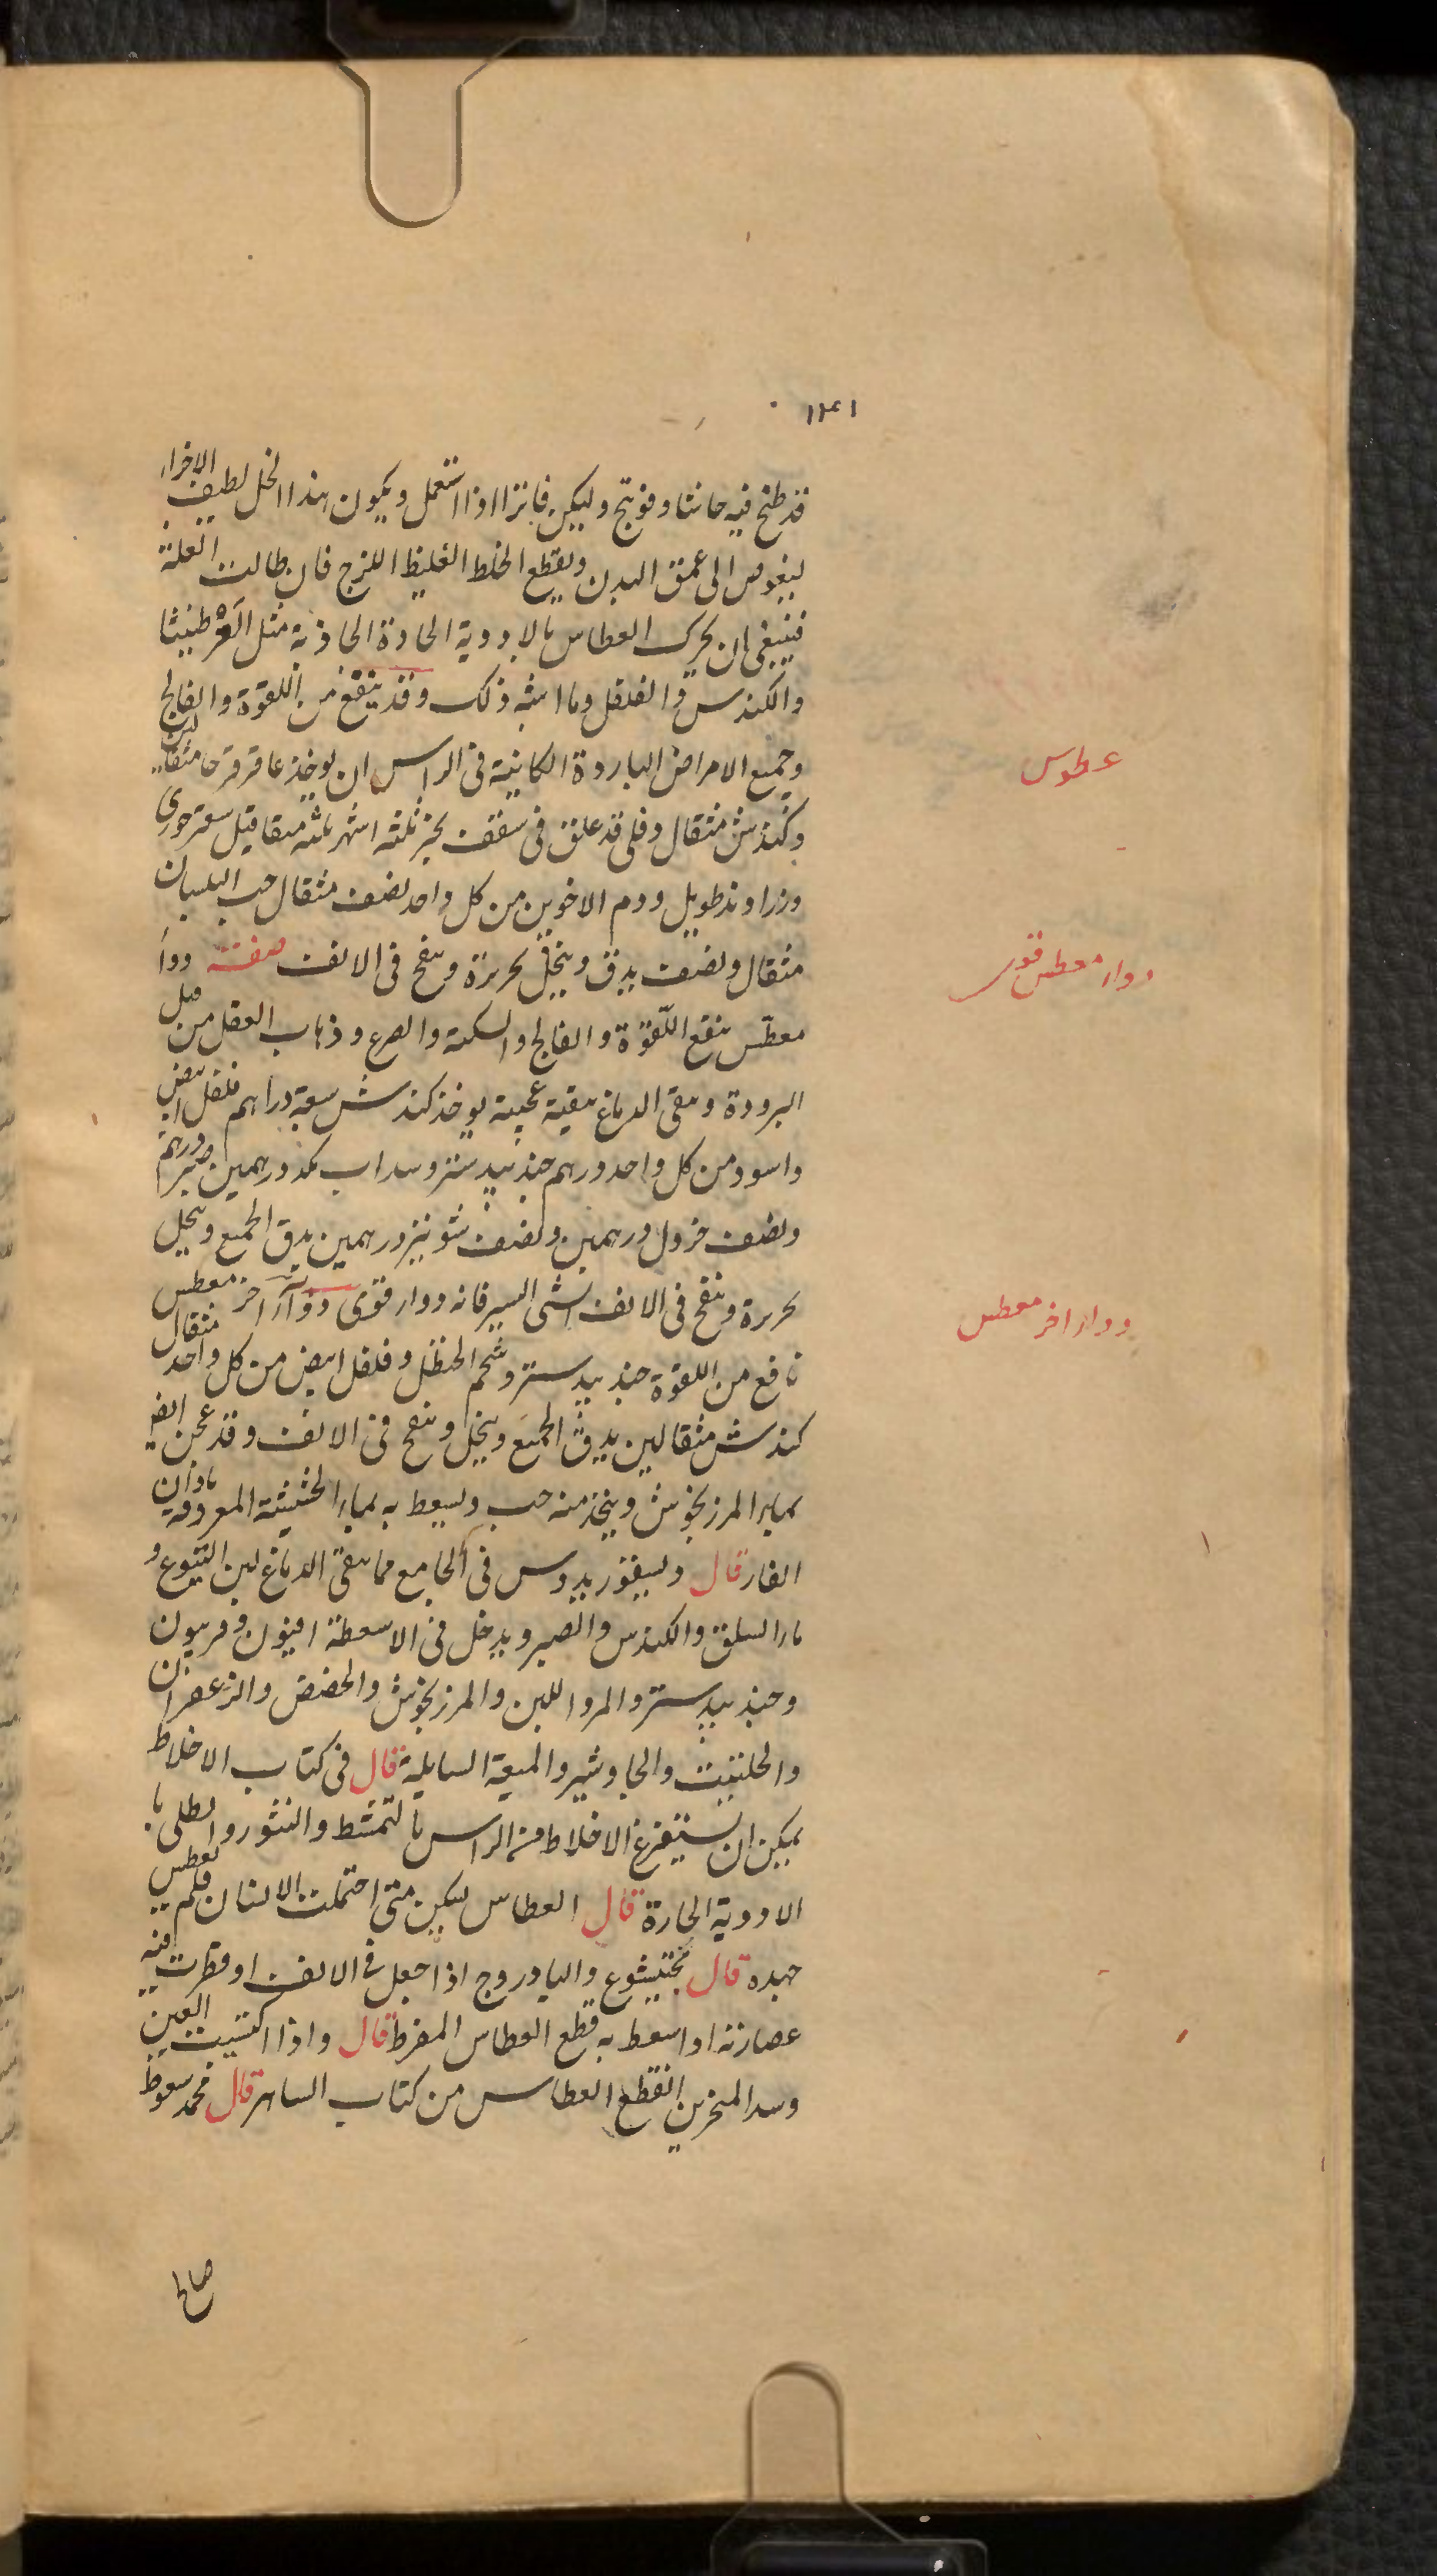 ١٢٤١
قد طبخ فيه حاشا وفوتنج وليكن فاترا اذا استعمل ويكون هذا الخل لطيف الاجزاء
ليغوص الى عمق البدن ويقطع الخلط الغليظ اللزج فان طالت العلة
فينبغي ان يحرك العطاس بالادوية الحادة الجاذبة مثل العرطنيثا
والكندس والفلفل وما اشبه ذلك وقد ينفع من اللقوة والفالج
وجميع الامراض الباردة الكاينة في الراس ان يوخذ عاقرقرحا مثقالين
عطوس
وكندش مثقال وقلى قد علق في سقف بحر ثلثه اشهر ثلثه مثاقيل سعتر خوزى
وزراوند طويل ودم الاخوين من كل واحد نصف مثقال حب البلسان
مثقال ونصف يدق وينخل بحريرة وينفخ في الانف صفة دواء
دواء معطس قوى
معطس ينفع اللقوة والفالج والسكتة والصرع وذهاب العقل من قبل
البرودة وينقى الدماغ تنقية عجيبة يوخذ كندش سبعة دراهم فلفل ابيض
واسود من كل واحد درهم جندبيدستر وسداب مكد درهمين صبر درهم
ونصف خردل درهمين ونصف شونيز درهمين يدق الجميع وينخل
بحريرة وينفخ في الانف الشي اليسير فانه دواء قوى دواء آخر معطس
دواء اخر معطس
نافع من اللقوة جندبيدستر وشحم الحنظل وفلفل ابيض من كل واحد مثقال
كندش مثقالين يدق الجميع وينخل وينفخ في الانف وقد عجن ايضا
بماء المرزنجوش ويتخذ منه حب ويسعط به بماء الحشيشة المعروفة باذان
الفار قال ديسقوريدوس في الجامع مما ينقى الدماغ لبن اليتوع و
ماء السلق والكندس والصبر ويدخل في الاسعطة افيون وفربيون
وجندبيدستر والمر واللبن والمرزنجوش والحضض والزعفران
والحلتيت والجاوشير والميعة السايلة قال في كتاب الاخلاط
يمكن ان يستفرغ الاخلاط من الراس بالتمشط والنثور والطلى با
الادوية الحارة قال العطاس ليكن متى احتملت الانسان فلم يعطس
جيده قال بختيشوع والبادروج اذا جعل في الانف او قطرت فيه
عصارته او اسعط به قطع العطاس المفرط قال واذا اكتسيت العين
وسد المنخرين انقطع العطاس من كتاب الساهر قال محمد سعوط
صالح